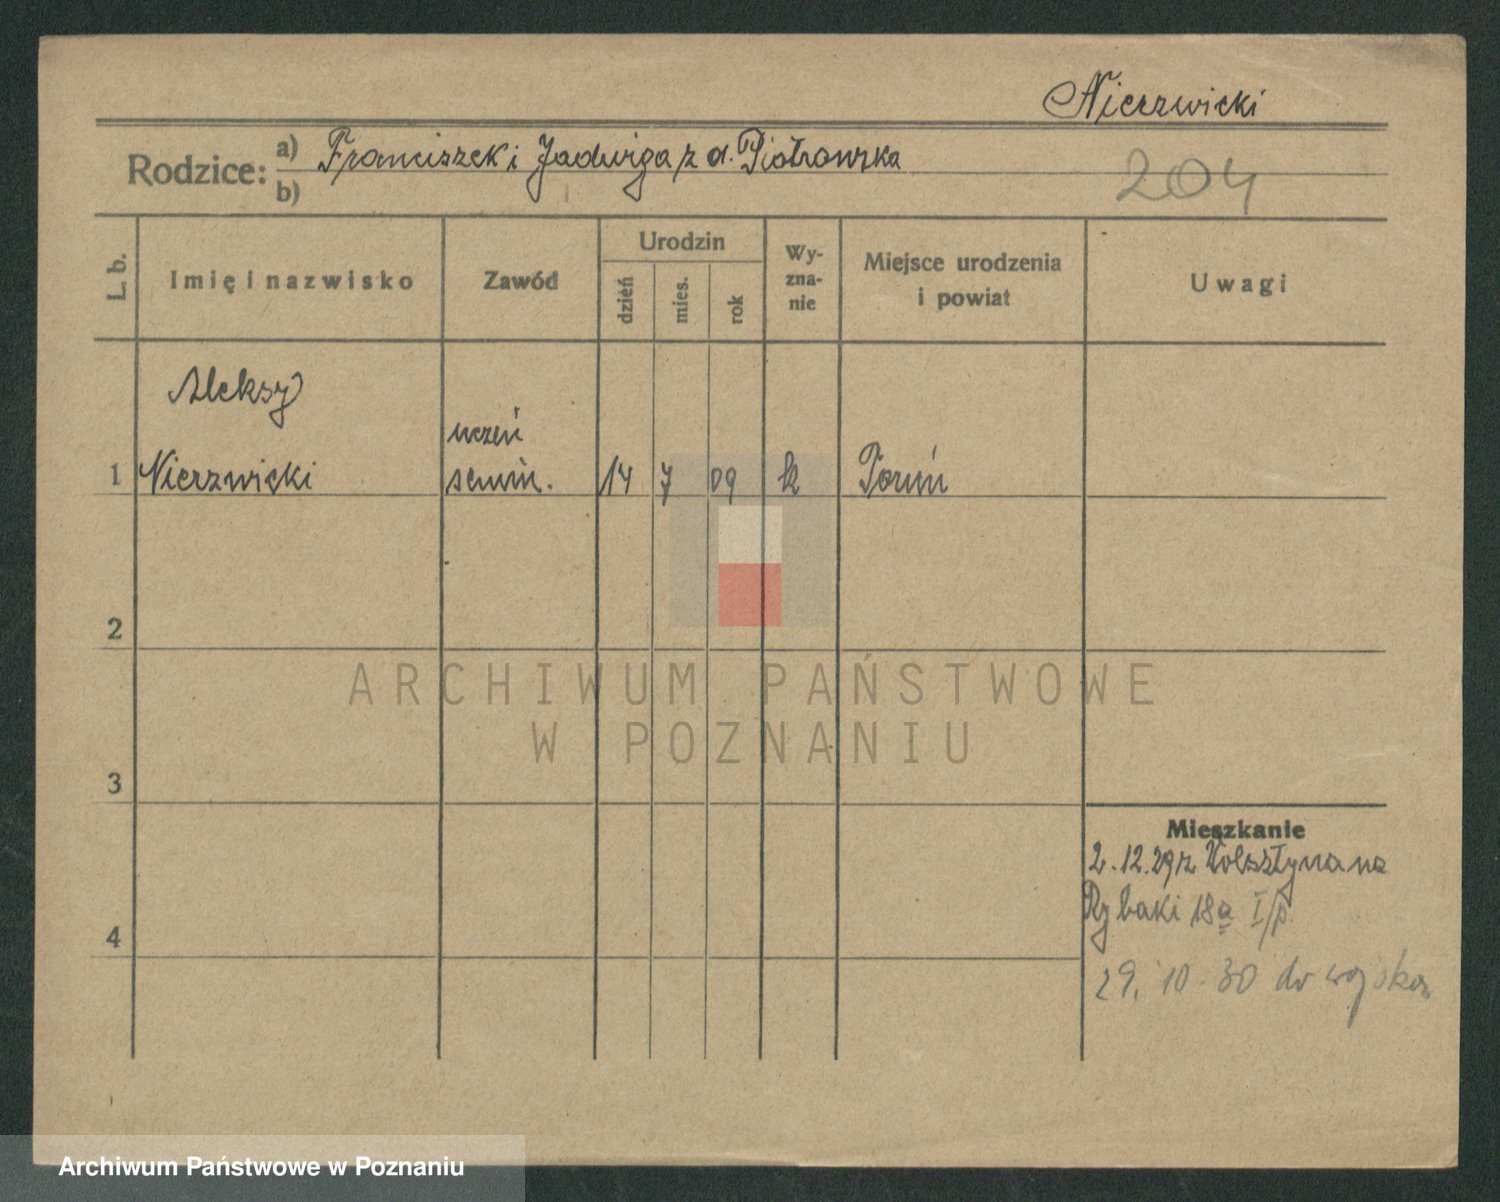 Nierzwicki
Rodzice: a) Franciszek i Jadwiga z d. Piotrowska
b)
204
L. b.
Imię i nazwisko
Zawód
Urodzin
dzień
mies.
rok
Wy-
zna-
nie
Miejsce urodzenia
i powiat
Uwagi
Aleksy
uczeń
1 Nierzwicki semin. 14 7 09 k Toruń
2
ARCHIWUM PAŃSTWOWE
W POZNANIU
3
Mieszkanie
2.12.29 z Wolsztyna na
Rybaki 18a I/p.
4
29. 10. 30 do wojska
Archiwum Państwowe w Poznaniu